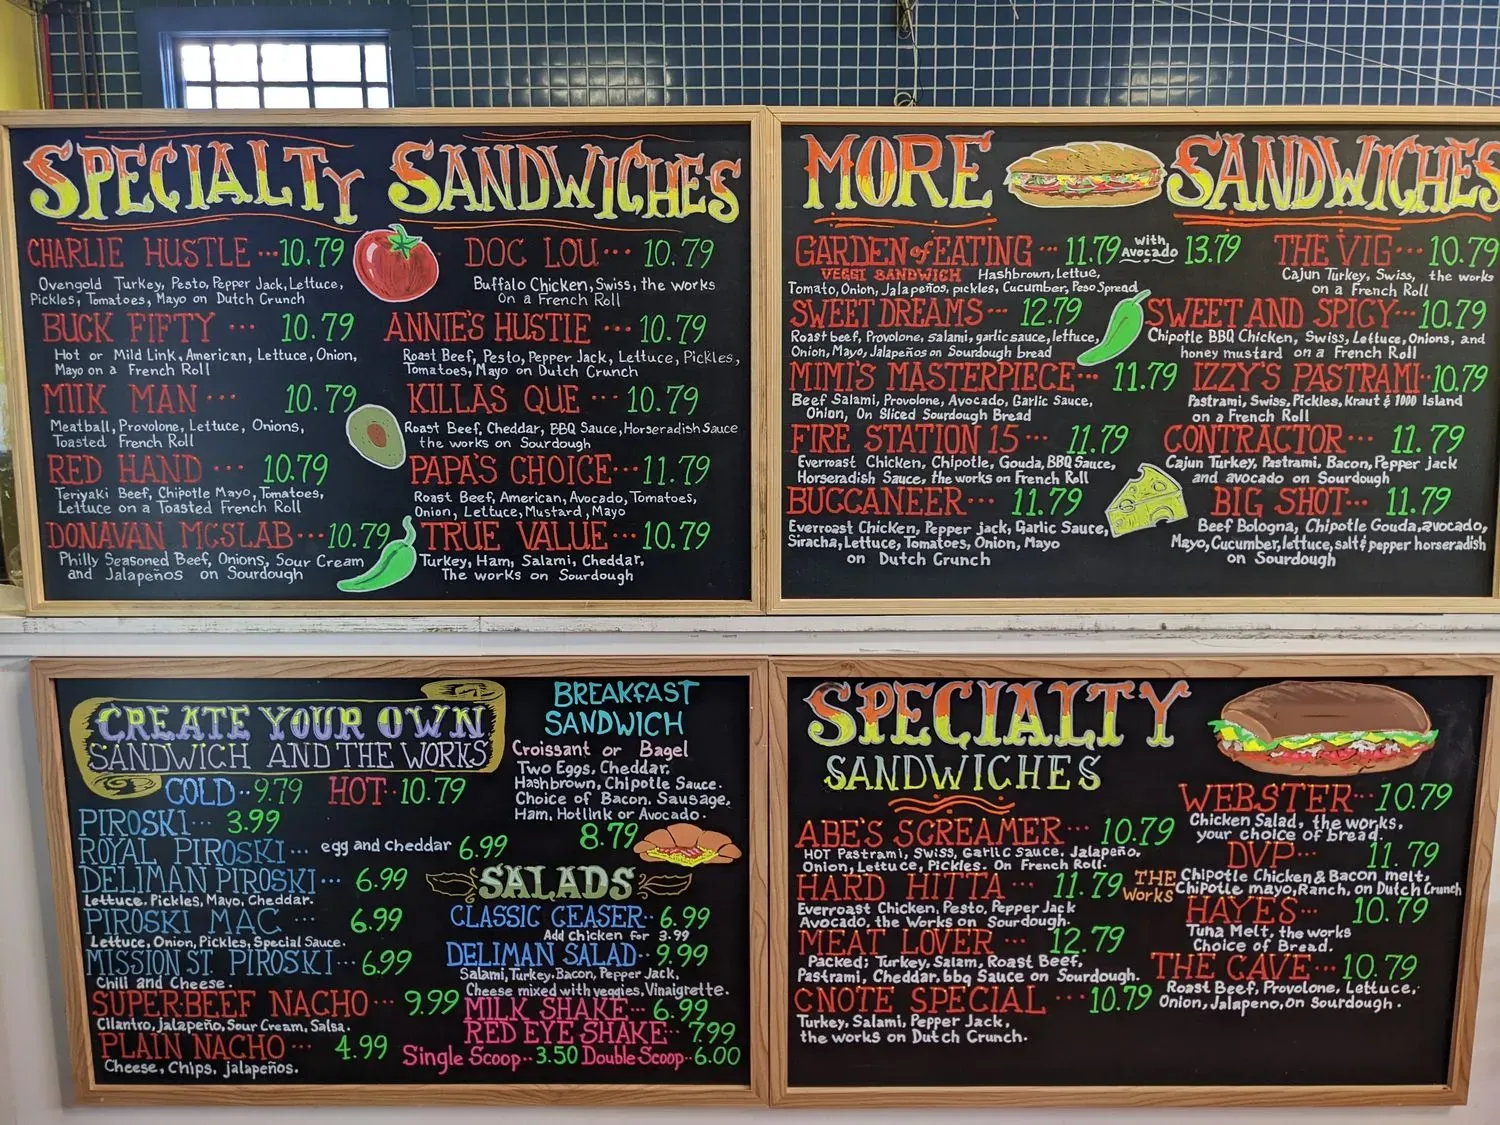 SPECIALTY SANDWICHES
CHARLIE HUSTLE ... 10.79
Ovengold Turkey, Pesto, Pepper Jack, Lettuce,
Pickles, Tomatoes, Mayo on Dutch Crunch
BUCK FIFTY ... 10.79
Hot or Mild Link, American, Lettuce, Onion,
Mayo on a French Roll
MIIK MAN ... 10.79
Meatball, Provolone, Lettuce, Onions,
Toasted French Roll
RED HAND ... 10.79
Teriyaki Beef, Chipotle Mayo, Tomatoes,
Lettuce on a Toasted French Roll
DONAVAN MCSLAB ... 10.79
Philly Seasoned Beef, Onions, Sour Cream
and Jalapeños on Sourdough
DOC LOU ... 10.79
Buffalo Chicken, Swiss, the works
On a French Roll
ANNIE'S HUSTIE ... 10.79
Roast Beef, Pesto, Pepper Jack, Lettuce, Pickles,
Tomatoes, Mayo on Dutch Crunch
KILLAS QUE ... 10.79
Roast Beef, Cheddar, BBQ Sauce, Horseradish Sauce
the works on Sourdough
PAPA'S CHOICE ... 11.79
Roast Beef, American, Avocado, Tomatoes,
Onion, Lettuce, Mustard, Mayo
TRUE VALUE ... 10.79
Turkey, Ham, Salami, Cheddar.
The works on Sourdough
MORE SANDWICHES
GARDEN of EATING ... 11.79 with Avocado 13.79
VEGGI SANDWICH Hashbrown, Lettue,
Tomato, Onion, Jalapeños, pickles, Cucumber, Peso Spread
SWEET DREAMS ... 12.79
Roast beef, Provolone, salami, garlic sauce, lettuce,
Onion, Mayo, Jalapeños on Sourdough bread
MIMI'S MASTERPIECE ... 11.79
Beef Salami, Provolone, Avocado, Garlic Sauce,
Onion, On Sliced Sourdough Bread
FIRE STATION 15 ... 11.79
Everroast Chicken, Chipotle, Gouda, BBQ Sauce,
Horseradish Sauce, the works on French Roll
BUCCANEER ... 11.79
Everroast Chicken, Pepper jack, Garlic Sauce,
Siracha, Lettuce, Tomatoes, Onion, Mayo
on Dutch Crunch
THE VIG ... 10.79
Cajun Turkey, Swiss, the works
on a French Roll
SWEET AND SPICY ... 10.79
Chipotle BBQ Chicken, Swiss, Lettuce, Onions, and
honey mustard on a French Roll
IZZY'S PASTRAMI ... 10.79
Pastrami, Swiss, Pickles, Kraut & 1000 Island
on a French Roll
CONTRACTOR ... 11.79
Cajun Turkey, Pastrami, Bacon, Pepper jack
and avocado on Sourdough
BIG SHOT ... 11.79
Beef Bologna, Chipotle Gouda, avocado,
Mayo, Cucumber, lettuce, salt & pepper horseradish
on Sourdough
CREATE YOUR OWN
SANDWICH AND THE WORKS
COLD .. 9.79 HOT .. 10.79
PIROSKI ... 3.99
ROYAL PIROSKI ... egg and cheddar 6.99
DELIMAN PIROSKI ... 6.99
Lettuce, Pickles, Mayo, Cheddar.
PIROSKI MAC ... 6.99
Lettuce, Onion, Pickles, Special Sauce.
MISSION ST. PIROSKI ... 6.99
Chill and Cheese.
SUPER BEEF NACHO ... 9.99
Cilantro, jalapeño, Sour Cream, Salsa.
PLAIN NACHO ... 4.99
Cheese, Chips, jalapeños.
BREAKFAST
SANDWICH
Croissant or Bagel
Two Eggs, Cheddar,
Hashbrown, Chipotle Sauce.
Choice of Bacon, Sausage,
Ham, Hotlink or Avocado.
8.79
SALADS
CLASSIC CEASER .. 6.99
Add Chicken for 3.99
DELIMAN SALAD .. 9.99
Salami, Turkey, Bacon, Pepper Jack,
Cheese mixed with veggies, Vinaigrette.
MILK SHAKE ... 6.99
RED EYE SHAKE ... 7.99
Single Scoop .. 3.50 Double Scoop .. 6.00
SPECIALTY
SANDWICHES
ABE'S SCREAMER ... 10.79
HOT Pastrami, Swiss, Garlic Sauce, Jalapeño,
Onion, Lettuce, Pickles. On French Roll.
HARD HITTA ... 11.79
Everroast Chicken, Pesto, Pepper Jack
Avocado, the Works on Sourdough.
MEAT LOVER ... 12.79
Packed; Turkey, Salam, Roast Beef,
Pastrami, Cheddar, bbq Sauce on Sourdough.
CNOTE SPECIAL ... 10.79
Turkey, Salami, Pepper Jack,
the works on Dutch Crunch.
THE
Works
WEBSTER ... 10.79
Chicken Salad, the works,
your choice of bread.
DVP ... 11.79
Chipotle Chicken & Bacon melt,
Chipotle mayo, Ranch, on Dutch Crunch
HAYES ... 10.79
Tuna Melt, the works
Choice of Bread.
THE CAVE ... 10.79
Roast Beef, Provolone, Lettuce,
Onion, Jalapeno, on Sourdough.